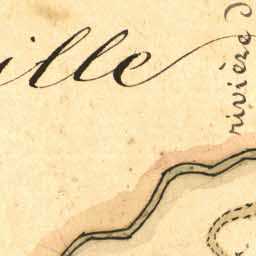 ille
rivière d